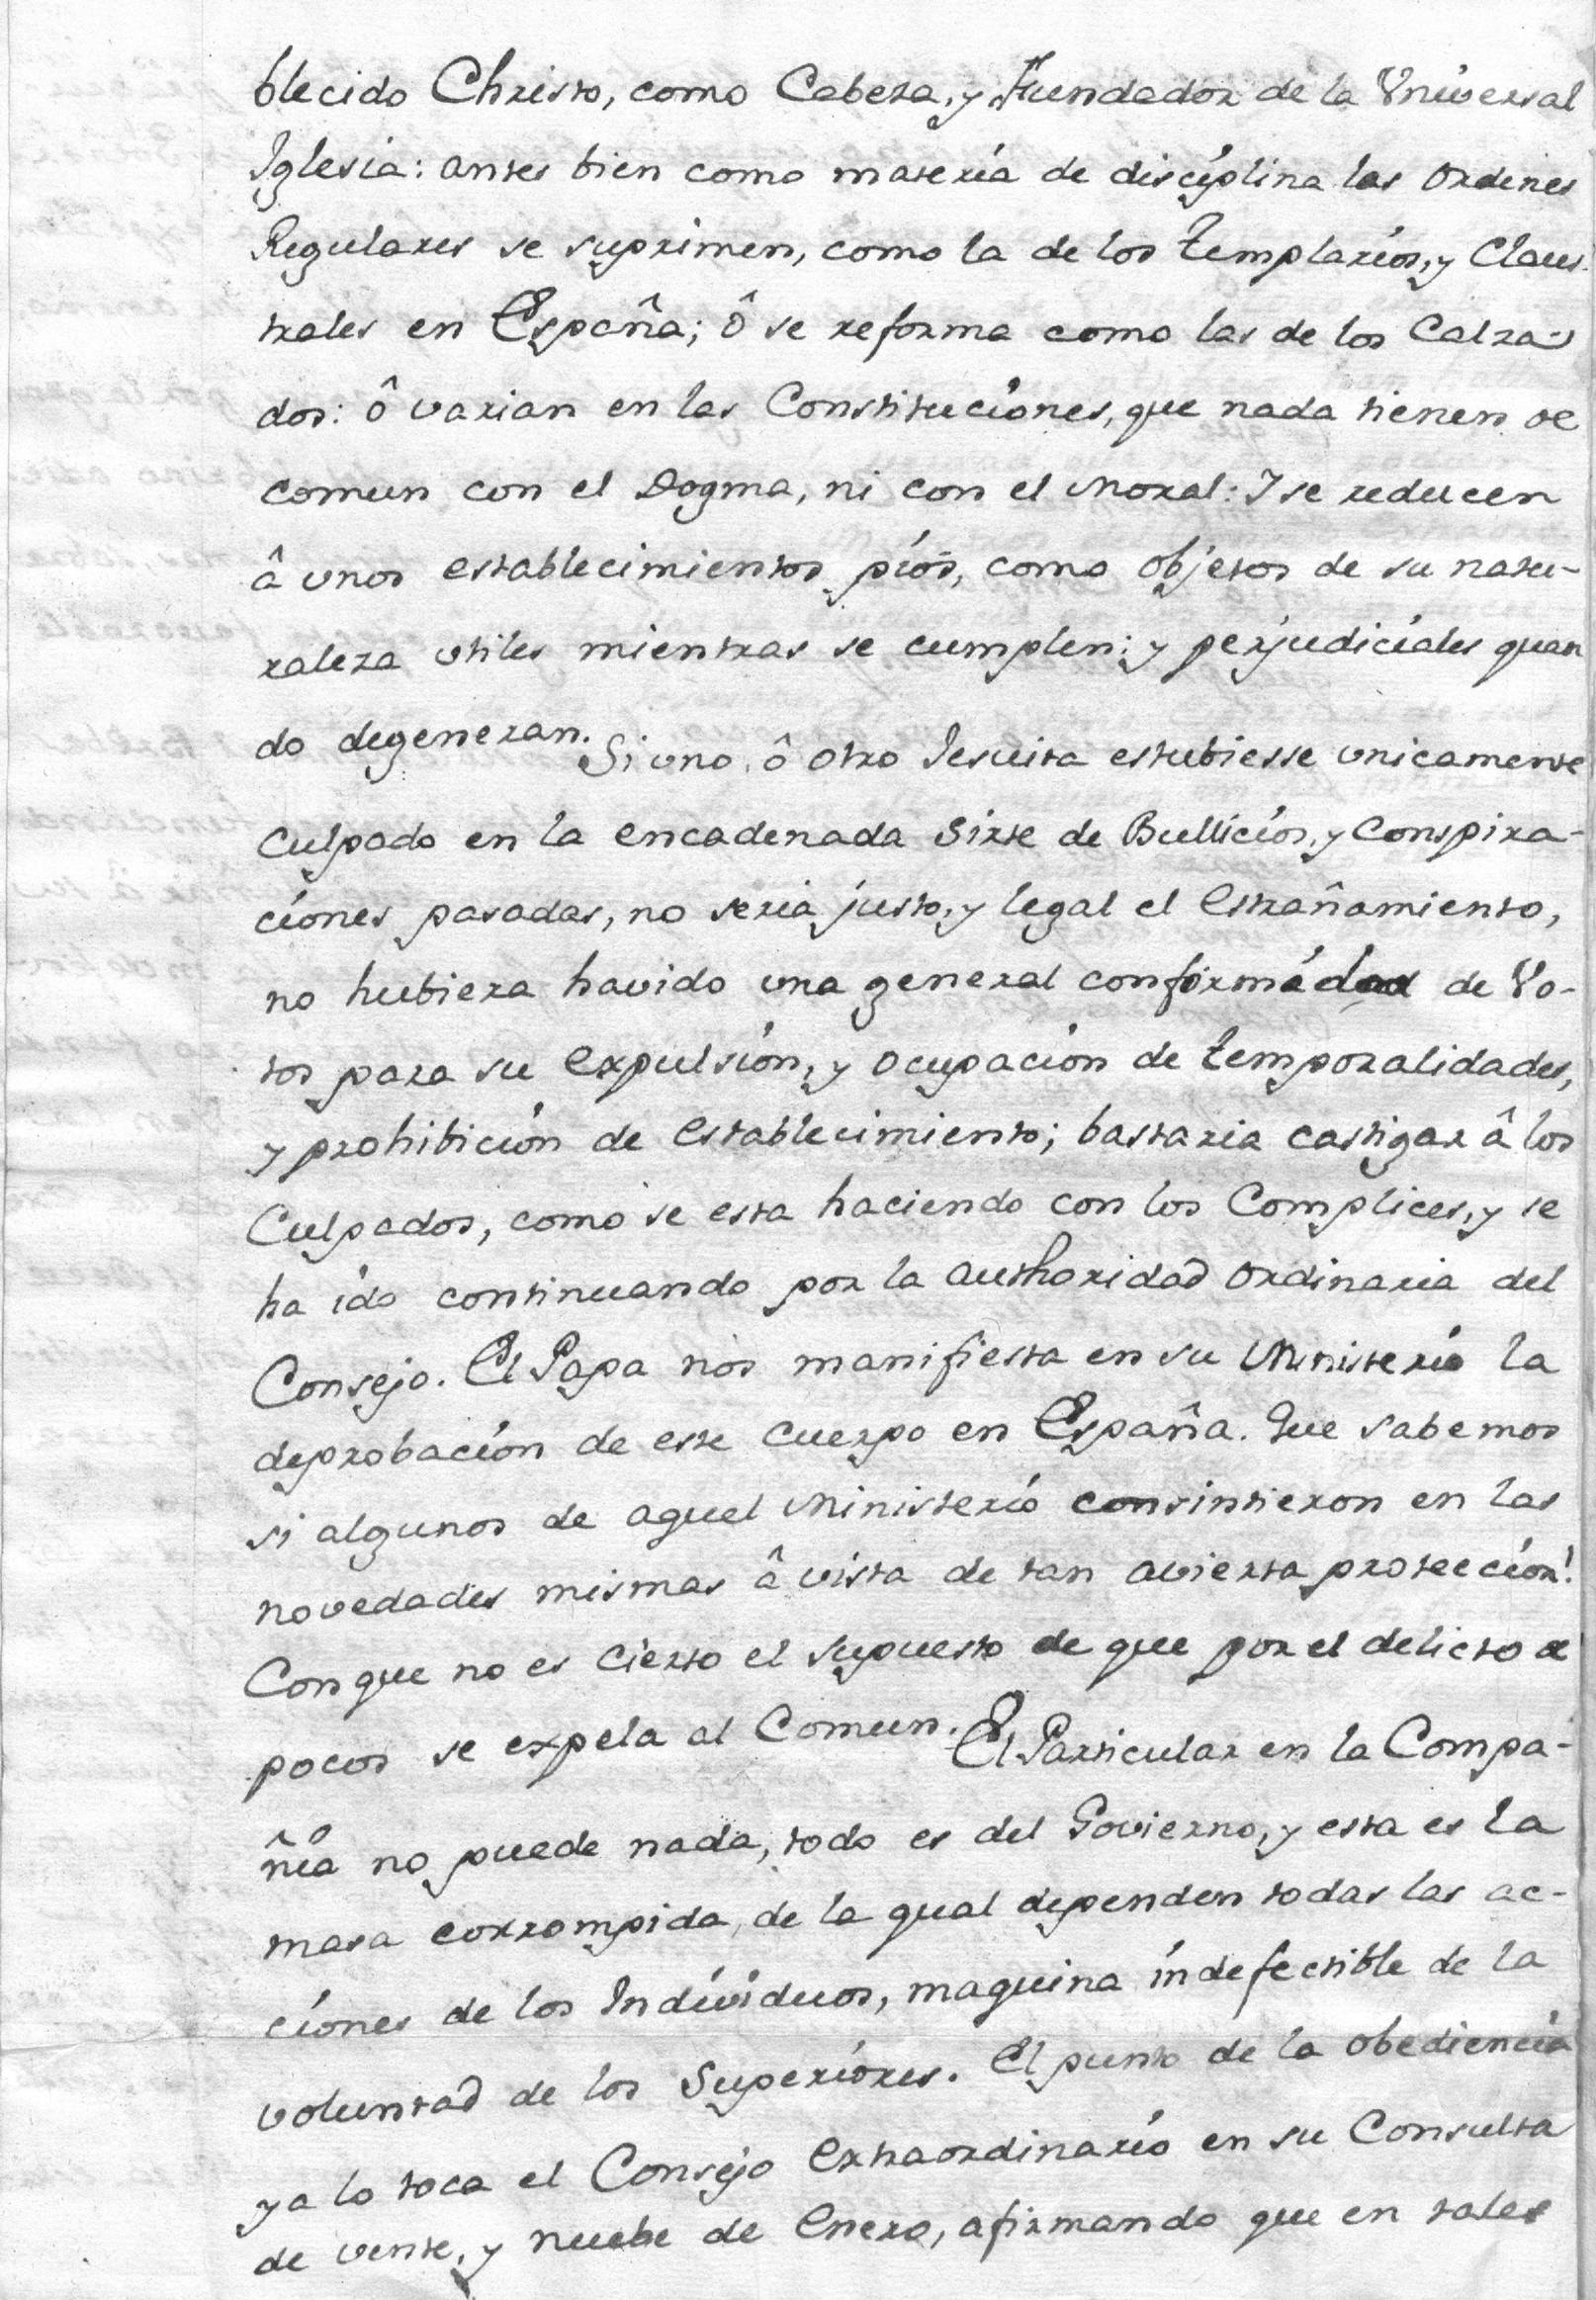 blecido Christo, como Cabeza, y Fundador de la Vniversal
Iglesia: antes bien como matería de discíplina las ordenes
Regulares se suprimen, como la de los templaríos, y Claus-
trales en España; ô se reforma como las de los Calza-
dos: ô varian en las Constitucíones, que nada tienen de
comun con el Dogma, ni con el moral: I se reducen
â unos establecimientos píos, como objetos de su natu-
raleza utiles mientras se cumplen: y perjudicíales quan
do degeneran. Si uno, ô otro Iesuita estubiesse unicamente
Culpado en la encadenada Sirte de Bullicíos, y Conspira-
cíones pasadas, no seria justo, y legal el estrañamiento,
no hubiera havido una general conformádad de Vo-
tos para su expulsíon, y ocupacíon de temporalidades,
y prohibicíon de establecimiento; bastaria castigar â los
Culpados, como se esta haciendo con los Complices, y se
ha ído continuando por la authoridad ordinaria del
Consejo. El Papa nos manifiesta en su Ministerío la
deprobacíon de este cuerpo en España. Que sabemos
si algunos de aquel Ministerío consintieron en las
novedades mismas â vista de tan avierta proteccíon!
Con que no es Cierto el supuesto de que por el delicto de
pocos se expela al Comun. El Particular en la Compa-
ñía no puede nada, todo es del Govierno, y esta es la
masa corrompida, de la qual dependen todas las ac-
cíones de los Indívíduos, maquina índefectible de la
voluntad de los Superíores. El punto de la obediencía
ya lo toca el Consejo extraordinarío en su Consulta
de vente, y nuebe de enero, afirmando que en tales